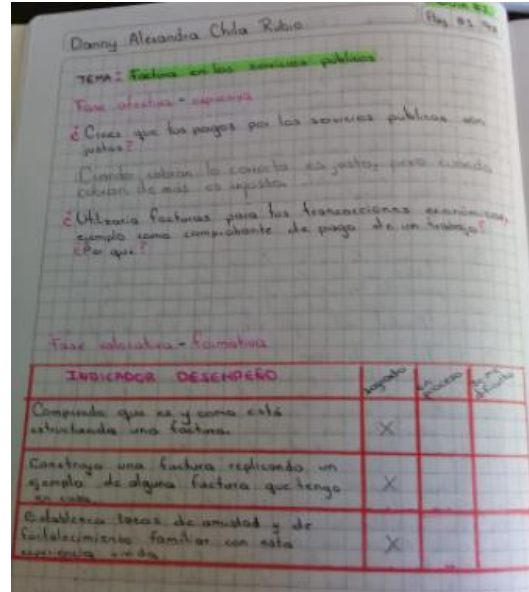 Danny Alexandra Chila Rubio
Pag #1
TEMA: Factura en los servicios publicos
Fase afectiva -
¿Crees que tus pagos por los servicios publicos son
justos?
Cuando cobran lo correcto es justo, pero cuando
cobran de mas es injusto
¿Utilizaria facturas para tus transacciones económicas,
ejemplo como comprobante de pago de un trabajo?
¿Por que?
Fase valorativa - formativa
INDICADOR DESEMPEÑO
logrado
en proceso
se me dificulta
Comprendo que es y como está
estructurada una factura.
X
Construyo una factura replicando un
ejemplo de alguna factura que tengo
en casa.
X
Establezco lazos de amistad y de
fortalecimiento familiar con esta
experiencia vivida
X